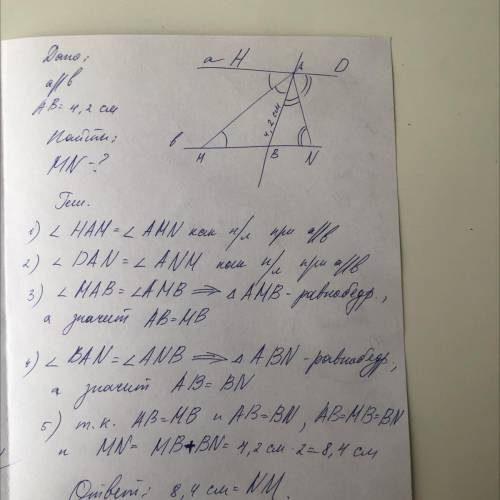 Дано:
a||b
AB = 4,2 см
Найти:
MN - ?
a H A D
4,2 см
b M B N
Реш.
1) ∠ HAM = ∠ AMN как н/л при a||b
2) ∠ DAN = ∠ ANM как н/л при a||b
3) ∠ MAB = ∠ AMB ⟹ △ AMB - равнобедр.,
а значит AB = MB
4) ∠ BAN = ∠ ANB ⟹ △ ABN - равнобедр.,
а значит AB = BN
5) т.к. AB = MB и AB = BN, AB = MB = BN
и MN = MB + BN = 4,2 см · 2 = 8,4 см
Ответ: 8,4 см = NM.